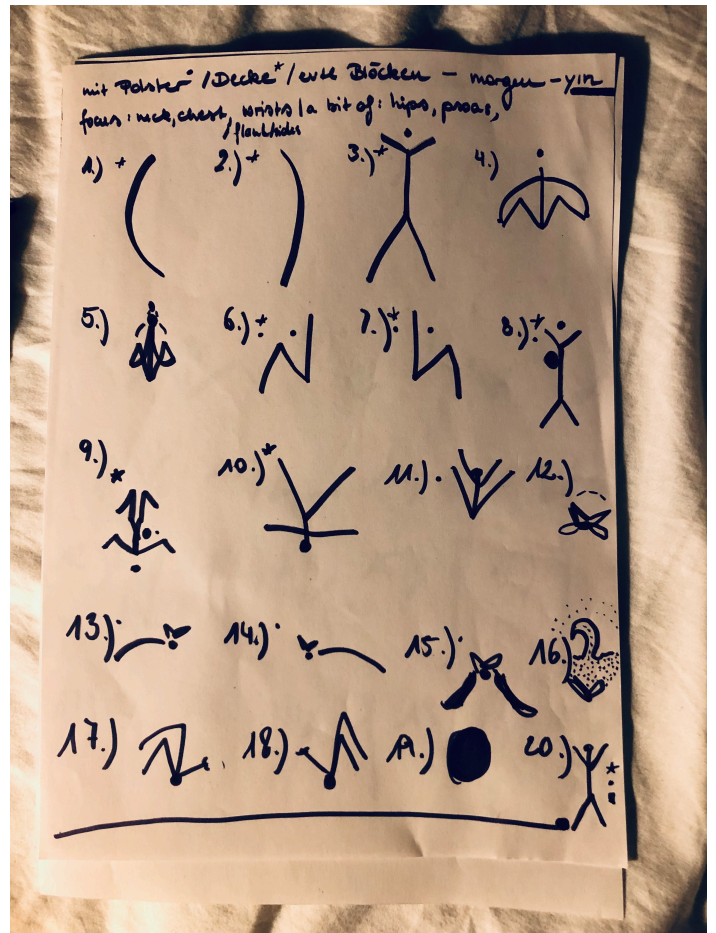 mit Polster° / Decke* / evtl Blöcken – morgen – yin
focus: neck, chest, wrists / a bit of: hips, psoas,
/ flank/sides
1.) * 2.) * 3.) * 4.)
5.) 6.) * 7.) * 8.) *
9.) * 10.) * 11.) 12.)
13.) 14.) 15.) 16.)
17.) 18.) 19.) 20.) *